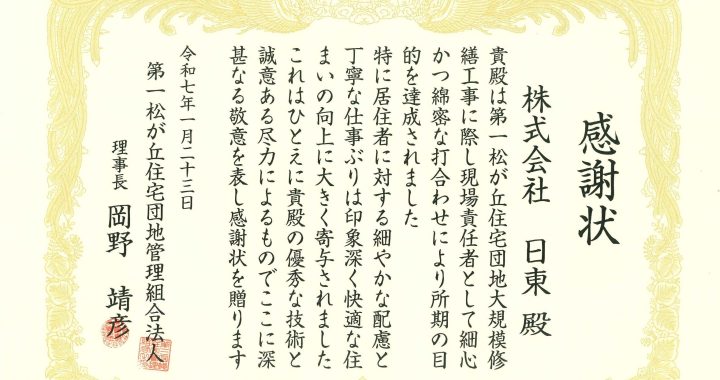 感謝状
株式会社 日東 殿
貴殿は第一松が丘住宅団地大規模修
繕工事に際し現場責任者として細心
かつ綿密な打合わせにより所期の目
的を達成されました
特に居住者に対する細やかな配慮と
丁寧な仕事ぶりは印象深く快適な住
まいの向上に大きく寄与されました
これはひとえに貴殿の優秀な技術と
誠意ある尽力によるものでここに深
甚なる敬意を表し感謝状を贈ります
令和七年一月二十三日
第一松が丘住宅団地管理組合法人
理事長 岡野 靖彦